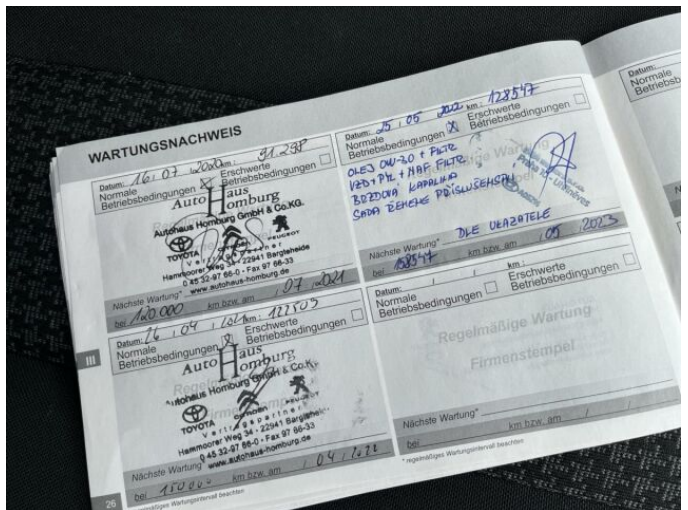 WARTUNGSNACHWEIS
Datum: 16 / 07 / 2020 km: 91.298
Normale Betriebsbedingungen
Erschwerte Betriebsbedingungen
Auto Haus Homburg
Autohaus Homburg GmbH & Co.KG.
TOYOTA
PEUGEOT
Vertragspartner
Hammoorer Weg 34 - 22941 Bargteheide
0 45 32-97 66-0 - Fax 97 66-33
www.autohaus-homburg.de
Nächste Wartung*
bei 120 000 km bzw. am / 07 / 2021
Datum: 26 / 04 / 2021 km: 122509
Normale Betriebsbedingungen
Erschwerte Betriebsbedingungen
Auto Haus Homburg
Autohaus Homburg GmbH & Co.KG.
TOYOTA
CITROËN
PEUGEOT
Vertragspartner
Hammoorer Weg 34 - 22941 Bargteheide
0 45 32-97 66-0 - Fax 97 66-33
www.autohaus-homburg.de
Nächste Wartung*
bei 150 000 km bzw. am / 04 / 2022
26
III
Datum: 25 / 05 2022 km: 128547
Normale Betriebsbedingungen
Erschwerte Betriebsbedingungen
OLEJ 0W-30 + FILTR
VZD + PYL + NAF. FILTR
BRZDOVÁ KAPALINA
SADA ŘEMENE PŘÍSLUŠENSTVÍ
Praha 10 - Uhříněves
Nächste Wartung* DLE UKAZATELE
bei 158547 km bzw. am / 05 / 2023
Datum: / / km:
Normale Betriebsbedingungen
Erschwerte Betriebsbedingungen
Regelmäßige Wartung
Firmenstempel
Nächste Wartung*
bei km bzw. am / /
* regelmäßiges Wartungsintervall beachten
Datum:
Normale